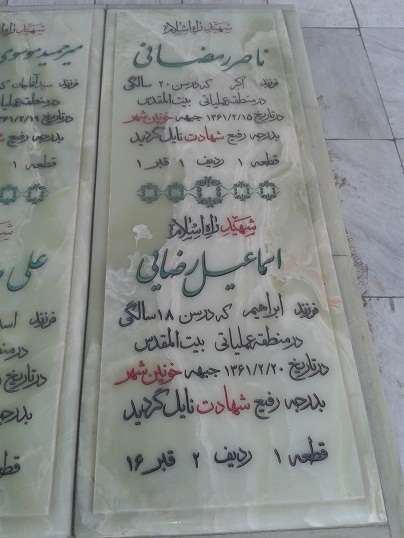 شهید راه اسلام
ناصر رمضانی
فرزند اکبر که در سن ۲۰ سالگی
در منطقه عملیاتی بیت المقدس
در تاریخ ۱۳۶۱/۲/۱۵ جبهه خونین شهر
بدرجه رفیع شهادت نایل گردید
قطعه ۱ ردیف ۱ قبر ۱
شهید راه اسلام
اسماعیل رضایی
فرزند ابراهیم که در سن ۱۸ سالگی
در منطقه عملیاتی بیت المقدس
در تاریخ ۱۳۶۱/۲/۲۰ جبهه خونین شهر
بدرجه رفیع شهادت نایل گردید
قطعه ۱ ردیف ۲ قبر ۱۶
شهید راه اسلام
میرحمید موسوی
فرزند سید آقاجان
در منطقه عملیا
در تاریخ
بدرجه رفیع
قطعه ۱
علی
فرزند
در منطقه
در تاریخ
بدرجه
قطعه